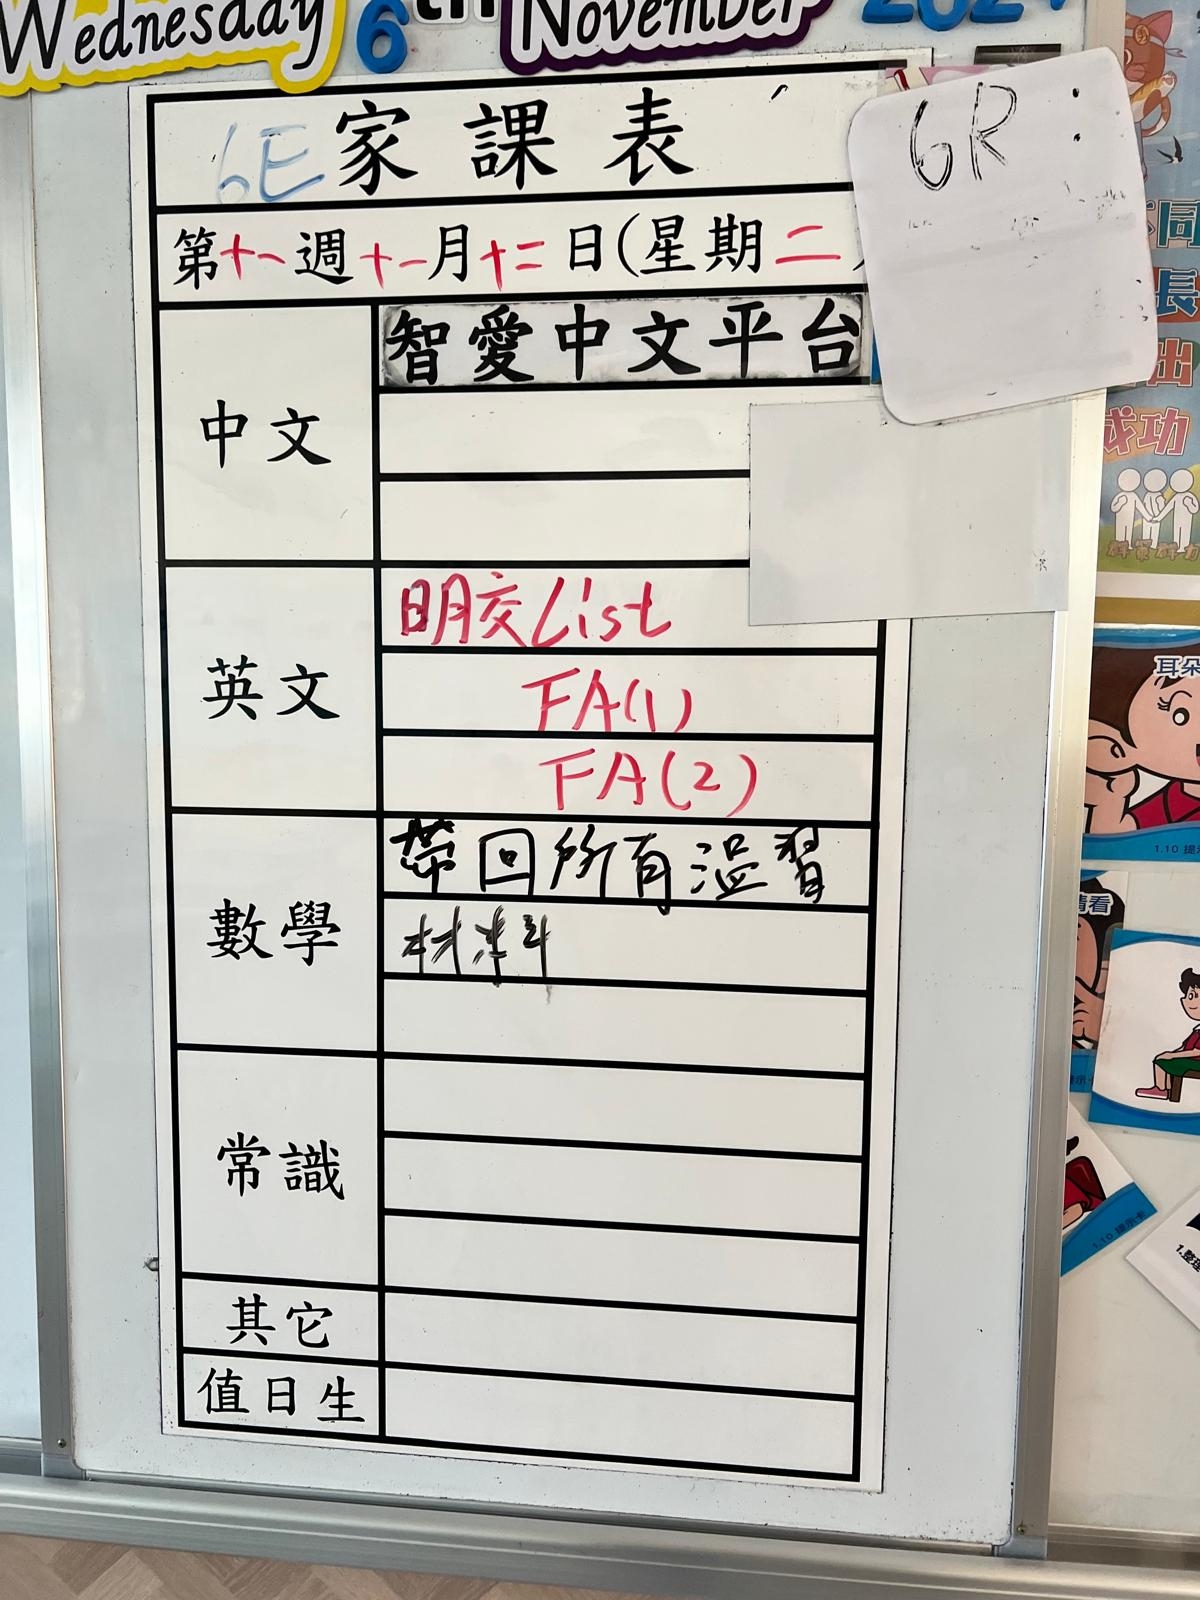 Wednesday 6th November 2024
6E 家課表
6R :
第十一週十一月十二日(星期二
中文
智愛中文平台
英文
明交List
FA(1)
FA(2)
數學
帶回所有溫習
材料
常識
其它
值日生
同
長
出
成功
耳朵
1.10 提示
請看
提示卡
1.10 提示卡
1.整理